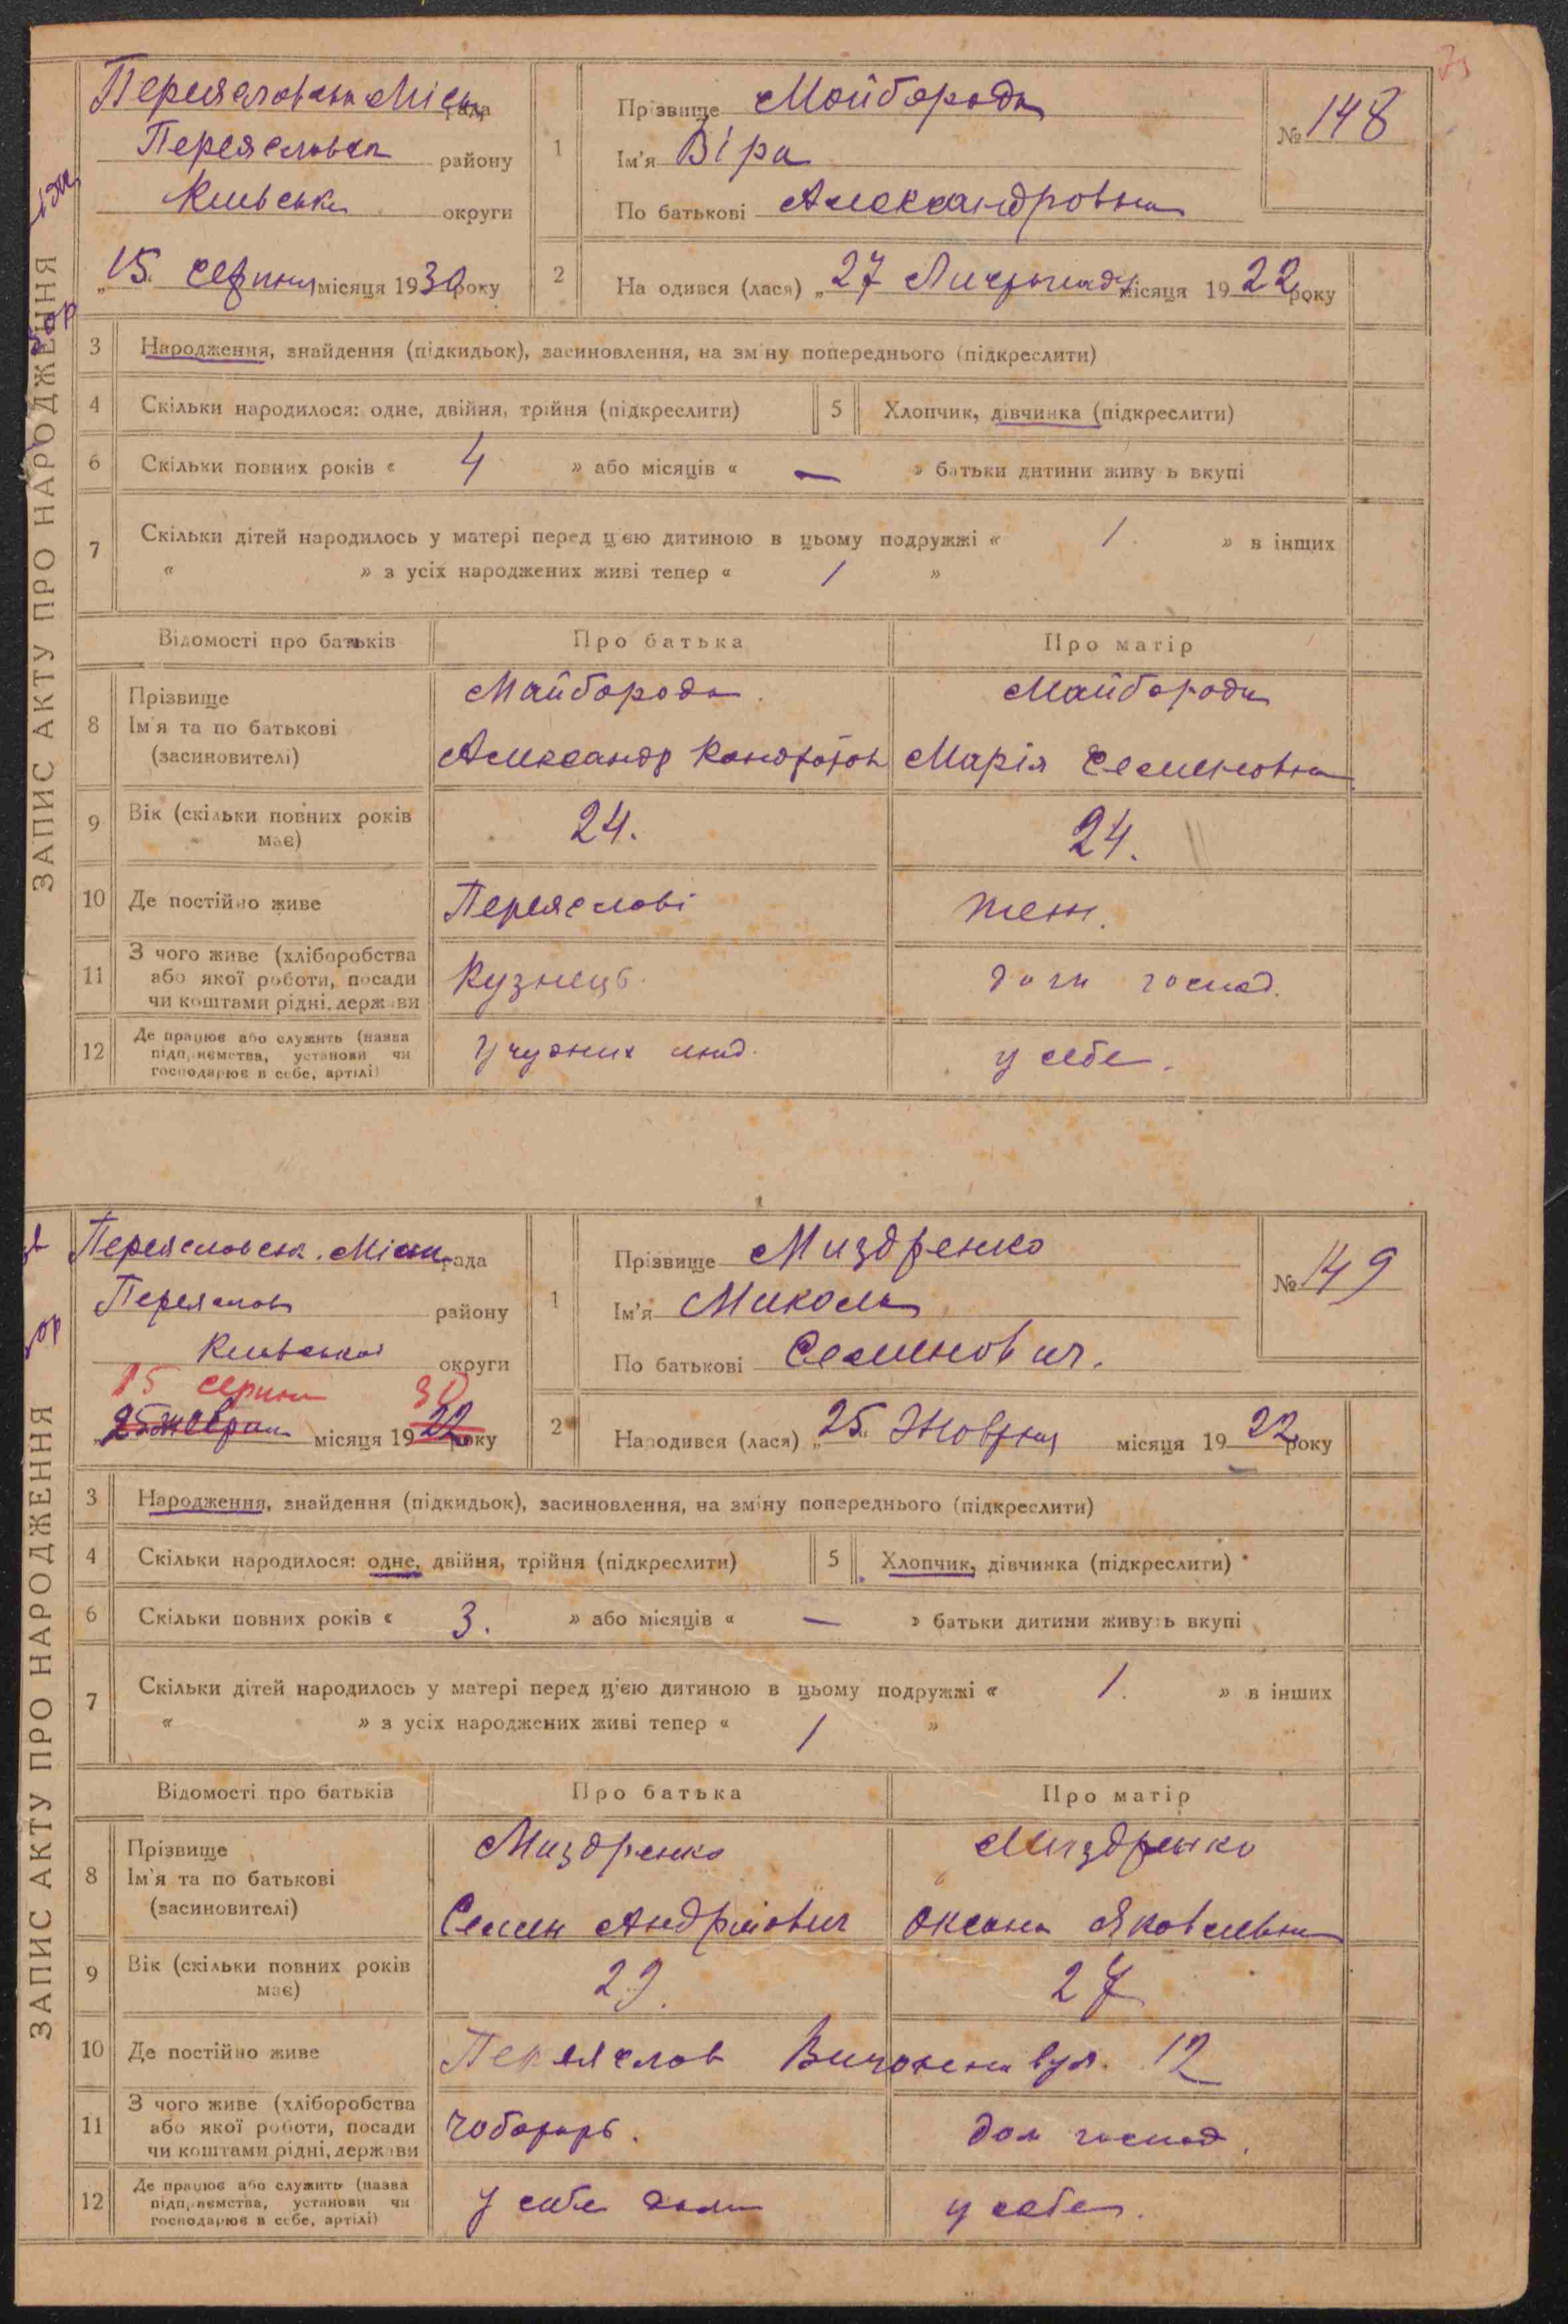 ЗАПИС АКТУ ПРО НАРОДЖЕННЯ
Переяславська Міськ рада
Переяславськ району
Київська округи
„15. серпня місяця 1930 року
1 Прізвище Майборода
Ім'я Віра
По батькові Александровна
№ 148
2 На одився (лася) „27 Листопада місяця 1922 року
3 Народження, знайдення (підкидьок), засиновлення, на зміну попереднього (підкреслити)
4 Скільки народилося: одне, двійня, трійня (підкреслити) 5 Хлопчик, дівчинка (підкреслити)
6 Скільки повних років « 4 » або місяців « — » батьки дитини живуть вкупі
7 Скільки дітей народилось у матері перед цією дитиною в цьому подружжі « 1. » в інших
« » з усіх народжених живі тепер « 1 »
Відомості про батьків Про батька Про матір
8 Прізвище Майборода Майборода
Ім'я та по батькові
(засиновителі) Александр Кондратов Марія Семеновна
9 Вік (скільки повних років має) 24. 24.
10 Де постійно живе Переяславі теж.
11 З чого живе (хліборобства
або якої роботи, посади Кузнець господ.
чи коштами рідні, держави
12 Де працює або служить (назва
підприємства, установи чи у чужих люд. у себе.
господарює в себе, артілі)
ЗАПИС АКТУ ПРО НАРОДЖЕННЯ
Переяславськ. Міськ рада
Переяслав району
Київської округи
15 серпня 30
„25 жовтня місяця 1922 року
1 Прізвище Миздренко
Ім'я Микола
По батькові Семенович.
№ 149
2 Народився (лася) „25" Жовтня місяця 1922 року
3 Народження, знайдення (підкидьок), засиновлення, на зміну попереднього (підкреслити)
4 Скільки народилося: одне, двійня, трійня (підкреслити) 5 Хлопчик, дівчинка (підкреслити)
6 Скільки повних років « 3. » або місяців « — » батьки дитини живуть вкупі
7 Скільки дітей народилось у матері перед цією дитиною в цьому подружжі « 1. » в інших
« » з усіх народжених живі тепер « 1 »
Відомості про батьків Про батька Про матір
8 Прізвище Миздренко Миздренко
Ім'я та по батькові
(засиновителі) Семен Андріович Оксана Яковлевна
9 Вік (скільки повних років має) 29. 27
10 Де постійно живе Переяслав вул. 12
11 З чого живе (хліборобства
або якої роботи, посади Чоботарь. дом господ.
чи коштами рідні, держави
12 Де працює або служить (назва
підприємства, установи чи У себе дома у себе.
господарює в себе, артілі)